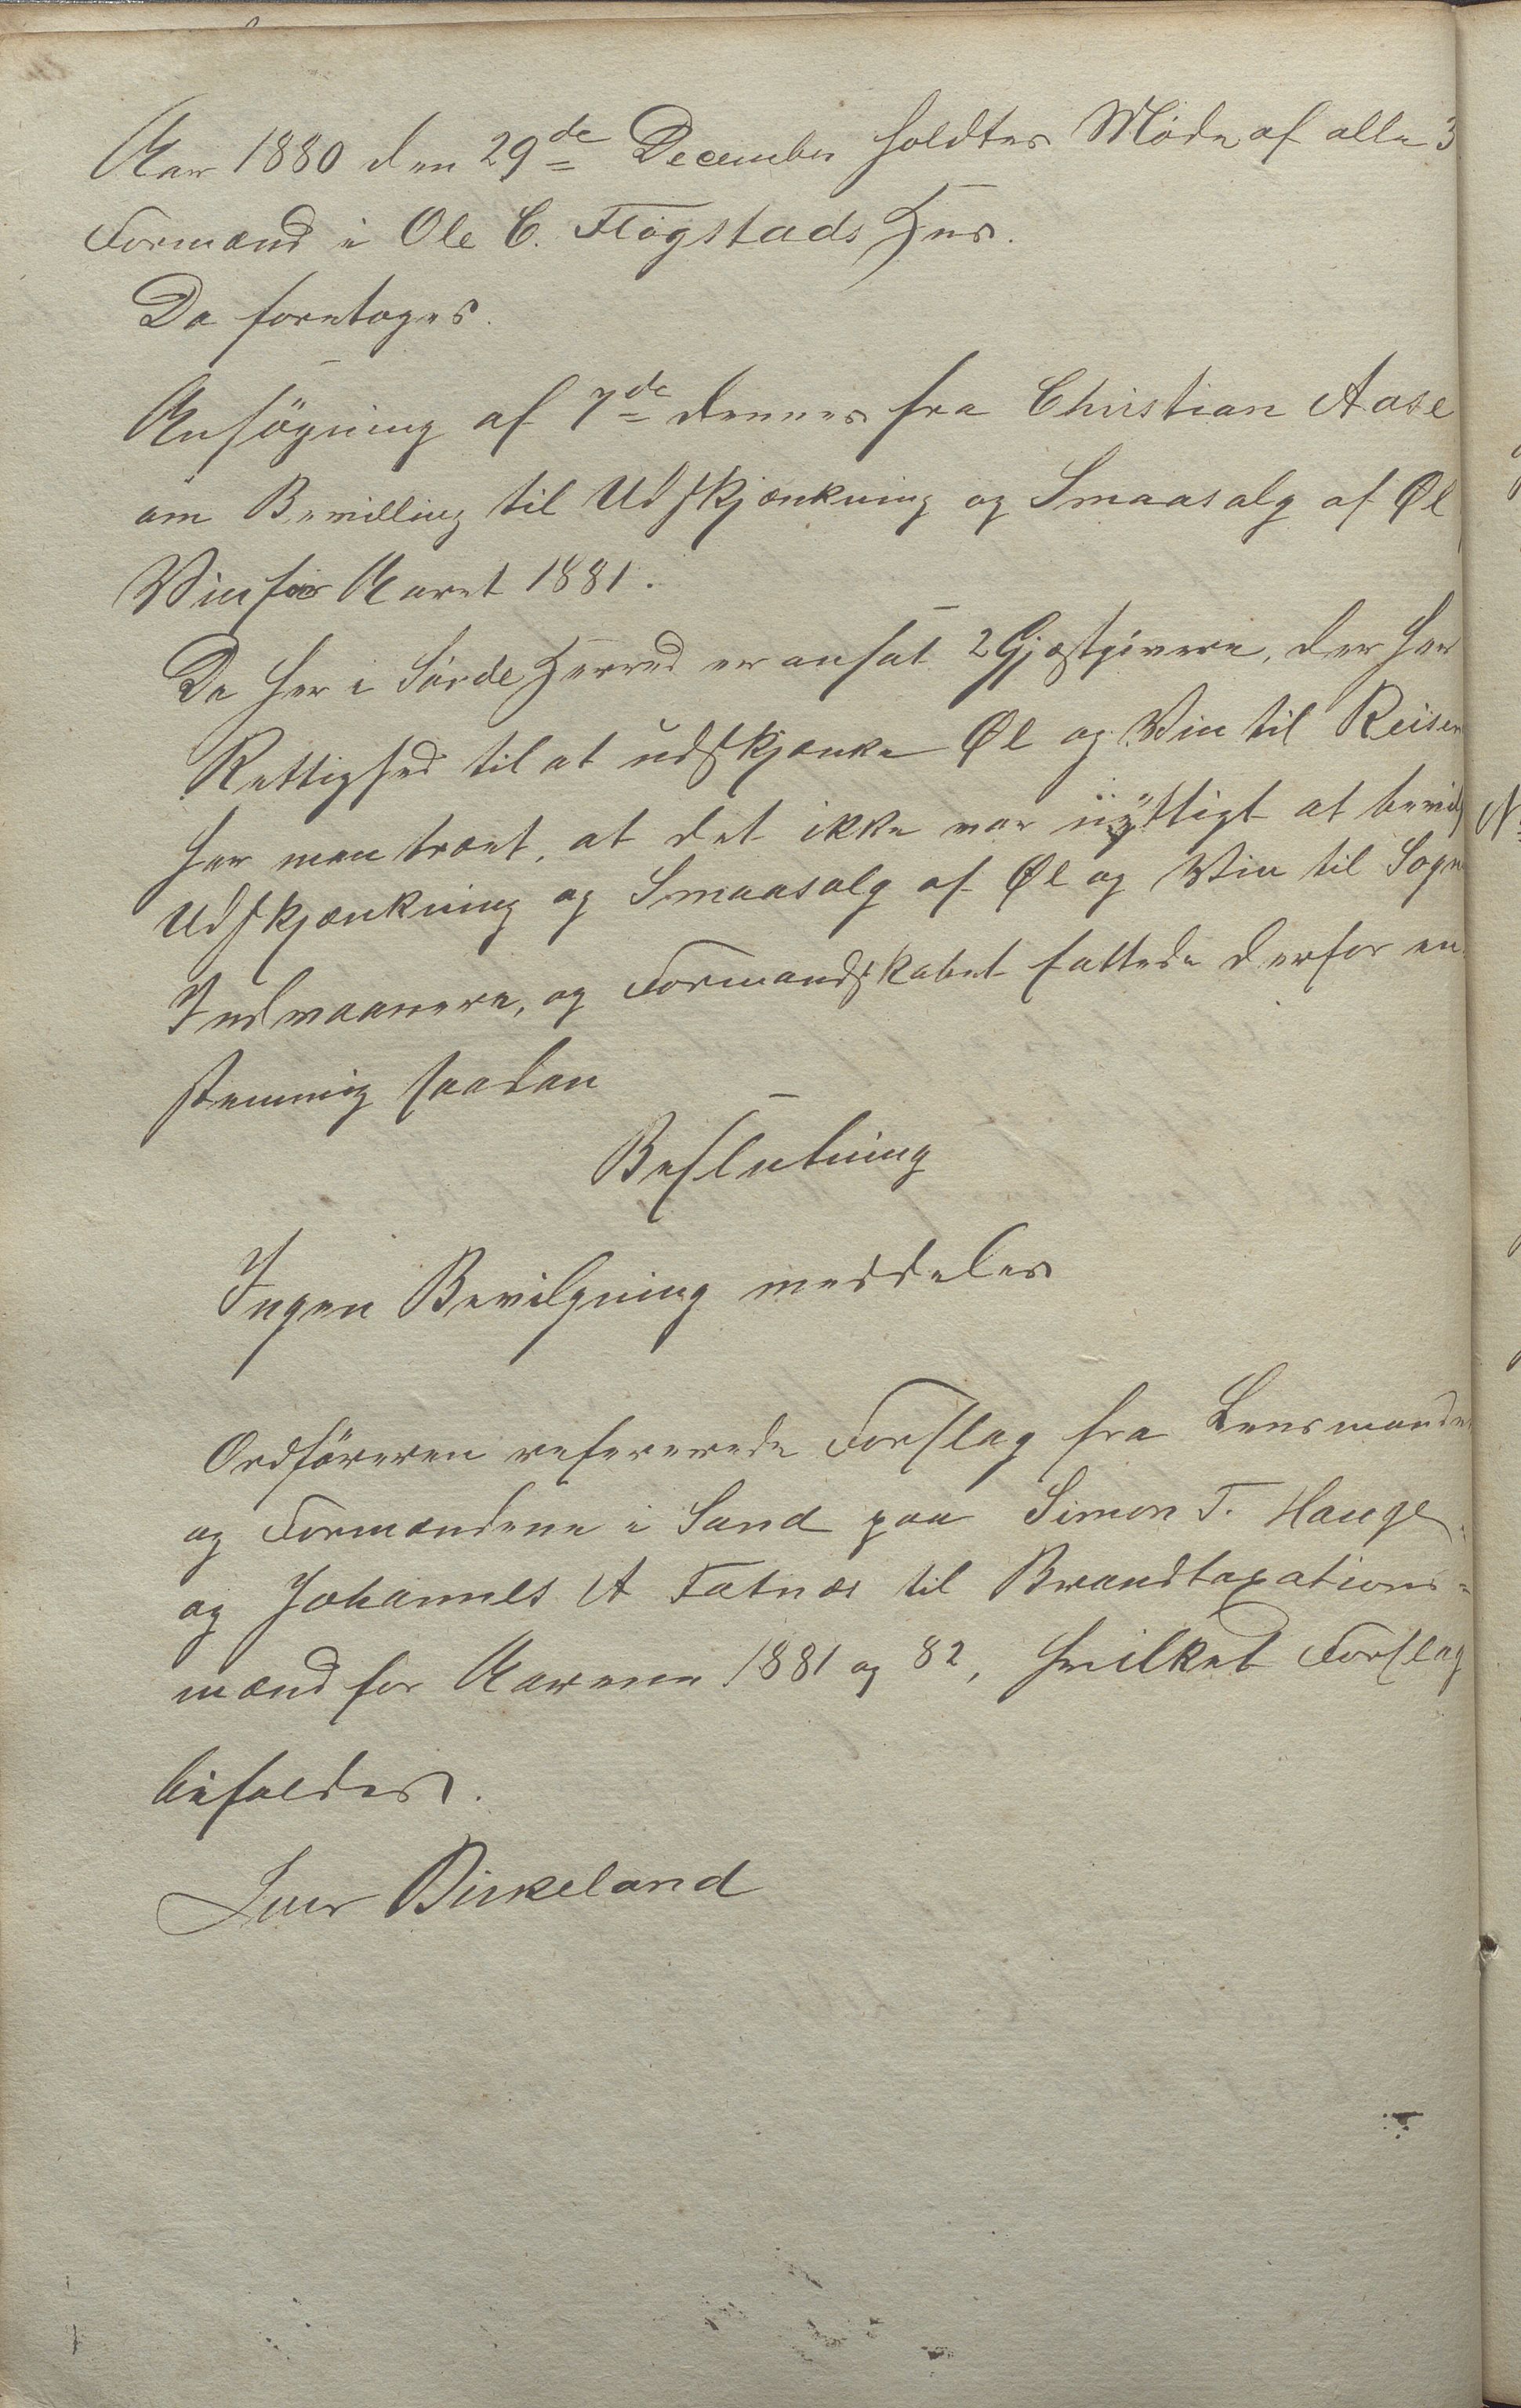 Aar 1880 den 29de December holdtes Møde af alle 3
Formænd i Ole C. Fløgstads Hus.
Da foretoges.
Ansøgning af 7de dennes fra Christian Aase
om Bevilling til Udskjænkning og Smaasalg af Øl
Vin for Aaret 1881.
Da her i Herred er ansat 2 Gjæstgivere, der har
Rettighed til at udskjænke Øl og Vin til Reisen
har man troet, at det ikke var nyttigt at bevilg
Udskjænkning og Smaasalg af Øl og Vin til Sogne
Indvaanere, og Formandskabet fattede derfor en
stemmig saadan
Beslutning
Ingen Bevilgning meddeles
Ordføreren refererede Forslag fra Lensmanden
og Formændene i Sand paa Simon T. Hauge
og Johannes A Fatnæs til Brandtaxations=
mænd for Aarene 1881 og 82, hvilket Forslag
bifaldes.
Iver Birkeland
N